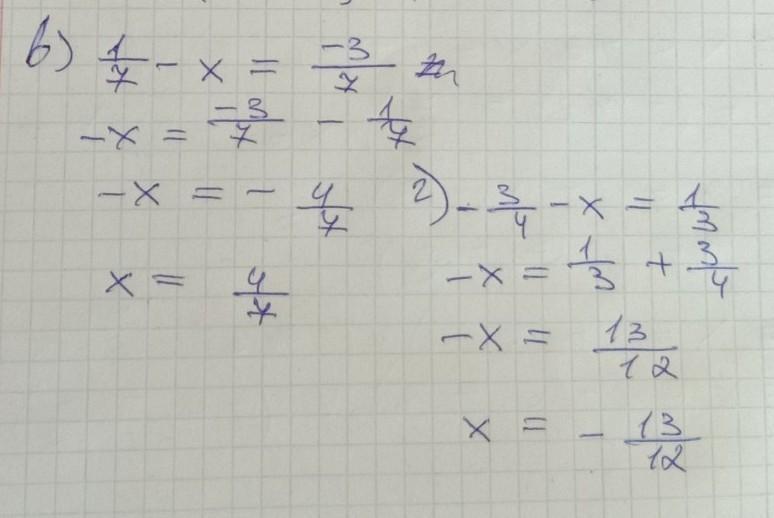 в) 1/7 - x = -3/7
-x = -3/7 - 1/7
-x = - 4/7
x = 4/7
г) - 3/4 - x = 1/3
-x = 1/3 + 3/4
-x = 13/12
x = - 13/12